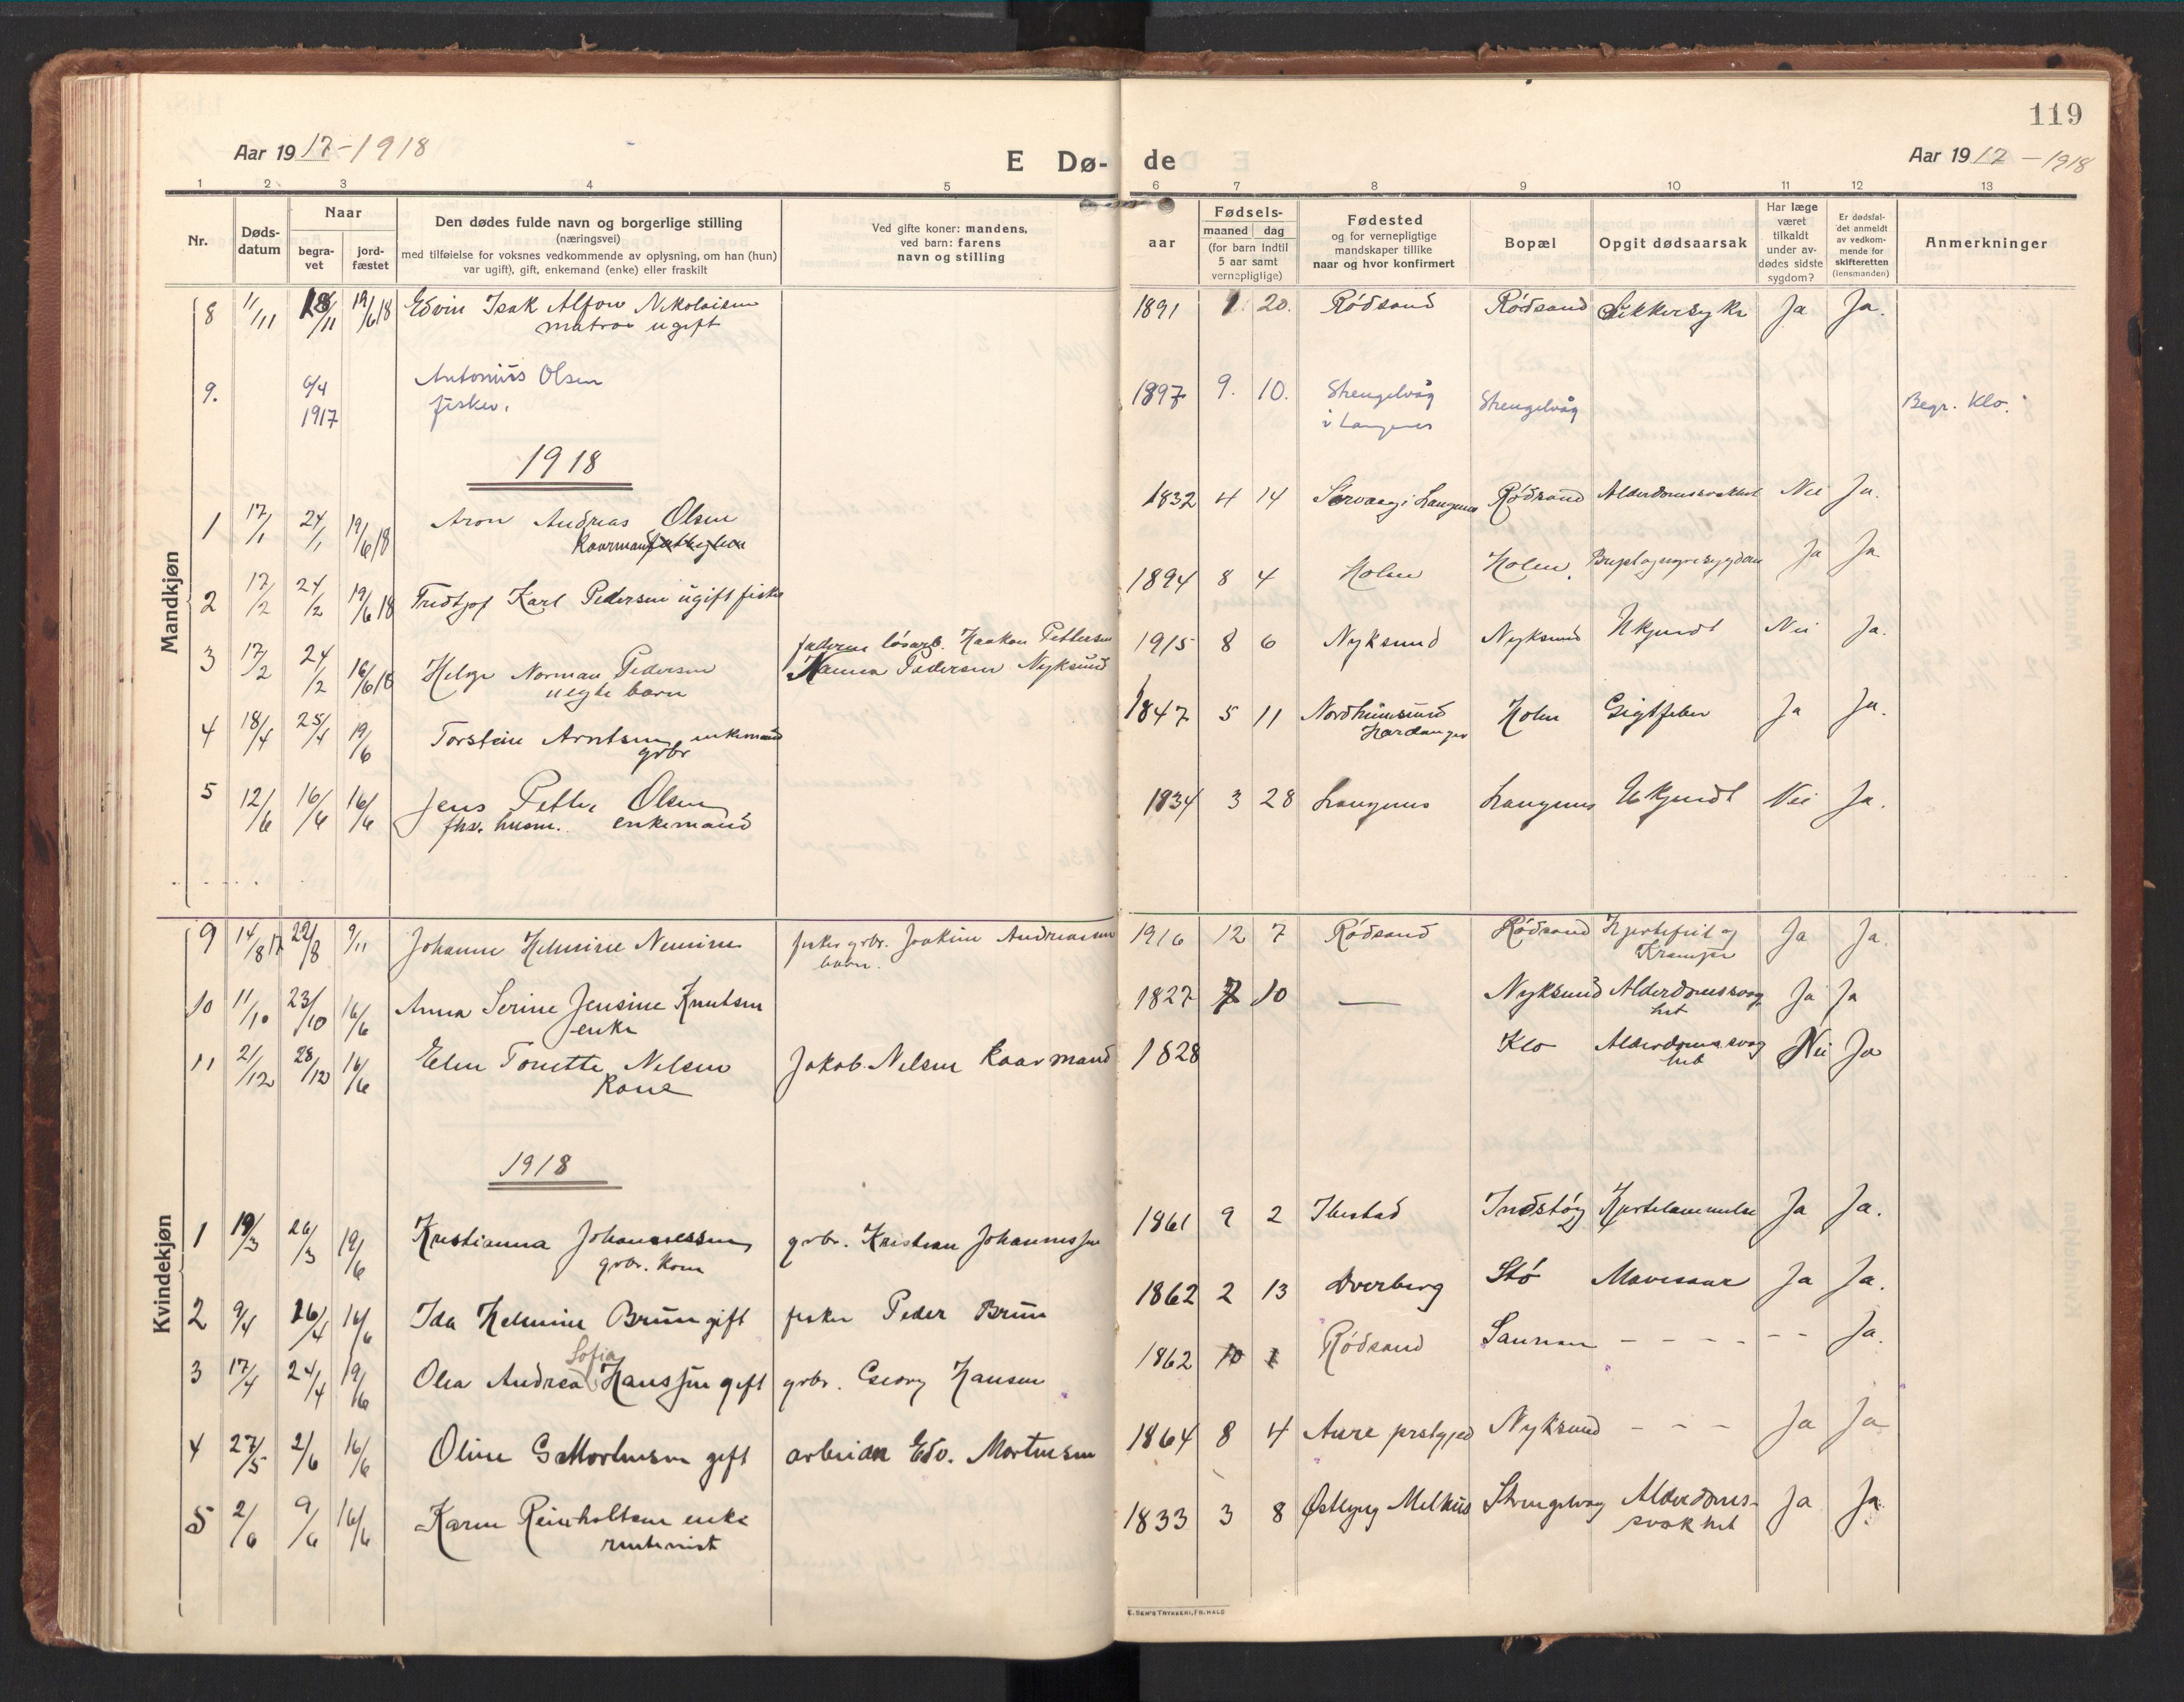 119
Aar 1917-1918
E Dø- de
Aar 1917 - 1918
1 2 3 4 5 6 7 8 9 10 11 12 13
Nr.
Døds-
datum
Naar
begra-
vet
jord-
fæstet
Den dødes fulde navn og borgerlige stilling
(næringsvei)
med tilføielse for voksnes vedkommende av oplysning, om han (hun)
var ugift), gift, enkemand (enke) eller fraskilt
Ved gifte koner: mandens,
ved barn: farens
navn og stilling
aar
Fødsels-
maaned dag
(for barn indtil
5 aar samt
vernepligtige)
Fødested
og for vernepligtige
mandskaper tillike
naar og hvor konfirmert
Bopæl
Opgit dødsaarsak
Har læge
været
tilkaldt
under av-
dødes sidste
sygdom?
Er dødsfal-
det anmeldt
av vedkom-
mende for
skifteretten
(lensmanden)
Anmerkninger
Mandkjøn
8 11/11 18/11 19/6 18 Edvin Isak Alfon Nikolaisen 1891 1 20. Rödsand Rödsand Sukkersyke Ja Ja.
matros ugift
9. 6/4 Antonius Olsen 1897 9. 10. Strengelvåg Strengelvåg Begr. Klo.
1917 fisker. i Langenes
1918
1 17/1 24/1 19/6 18 Aron Andreas Olsen 1832 4 14 i Langenes Rödsand Alderdomssvakhet Nei Ja.
Kaarmand
2 17/2 24/2 19/6 18 Fridtjof Karl Pedersen ugift fisker 1894 8 4 Holm Holm. Ja Ja
3 17/2 24/2 16/6 18 Helge Norman Pedersen faderen lösarb. Haakon Pettersen 1915 8 6 Nyksund Nyksund Ukjendt Nei Ja.
uegte barn Hanna Pedersen Nyksund
4 18/4 25/4 19/6 Torstein Arntsen enkemand 1847 5 11 Nordheimsund Holm Gigtfeber Ja Ja.
grbr Hardanger
5 12/6 16/6 16/6 Jens Petter Olsen 1834 3 28 Langenes Langenes Ukjendt Nei Ja.
fhv. husm. enkemand
Kvindekjøn
9 14/8 17 22/8 9/11 Johanne Helmine Nemine fisker grbr. Joakim Andreassen 1916 12 7 Rödsand Rödsand Hjertefeil og Ja Ja.
barn. Kramper
10 11/10 23/10 16/6 Anna Serine Jensine Knutsen 1827 7 10 — Nyksund Alderdomssvag Ja Ja
enke het
11 21/12 28/12 16/6 Elen Tonette Nelsen Jakob Nelsen Kaarmand 1828 Klo Alderdomssvag Nei Ja
Kone het
1918
1 19/3 26/3 19/6 Kristianna Johannessen grbr. Kristian Johannessen 1861 9 2 Ibestad Indstöy Hjertelammelse Ja Ja.
grbr. kone
2 9/4 16/4 16/6 Ida Helmine Brun gift fisker Peder Brun 1862 2 13 Dverberg Stö Mavesaar Ja Ja.
Sofia
3 17/4 24/4 19/6 Olea Andrea Hanssen gift grbr. Georg Hansen 1862 10 1 Rödsand - - - - - - Ja.
4 27/5 2/6 16/6 Oline G Mortensen gift Edv. Mortensen 1864 8 4 Aure prstgjed Nyksund - - - Ja Ja
5 2/6 9/6 16/6 Karen Reinholtsen enke 1833 3 8 Strengelvag Alderdoms- Ja Ja.
svakhet
E. SEM'S TRYKKERI, FR.HALD